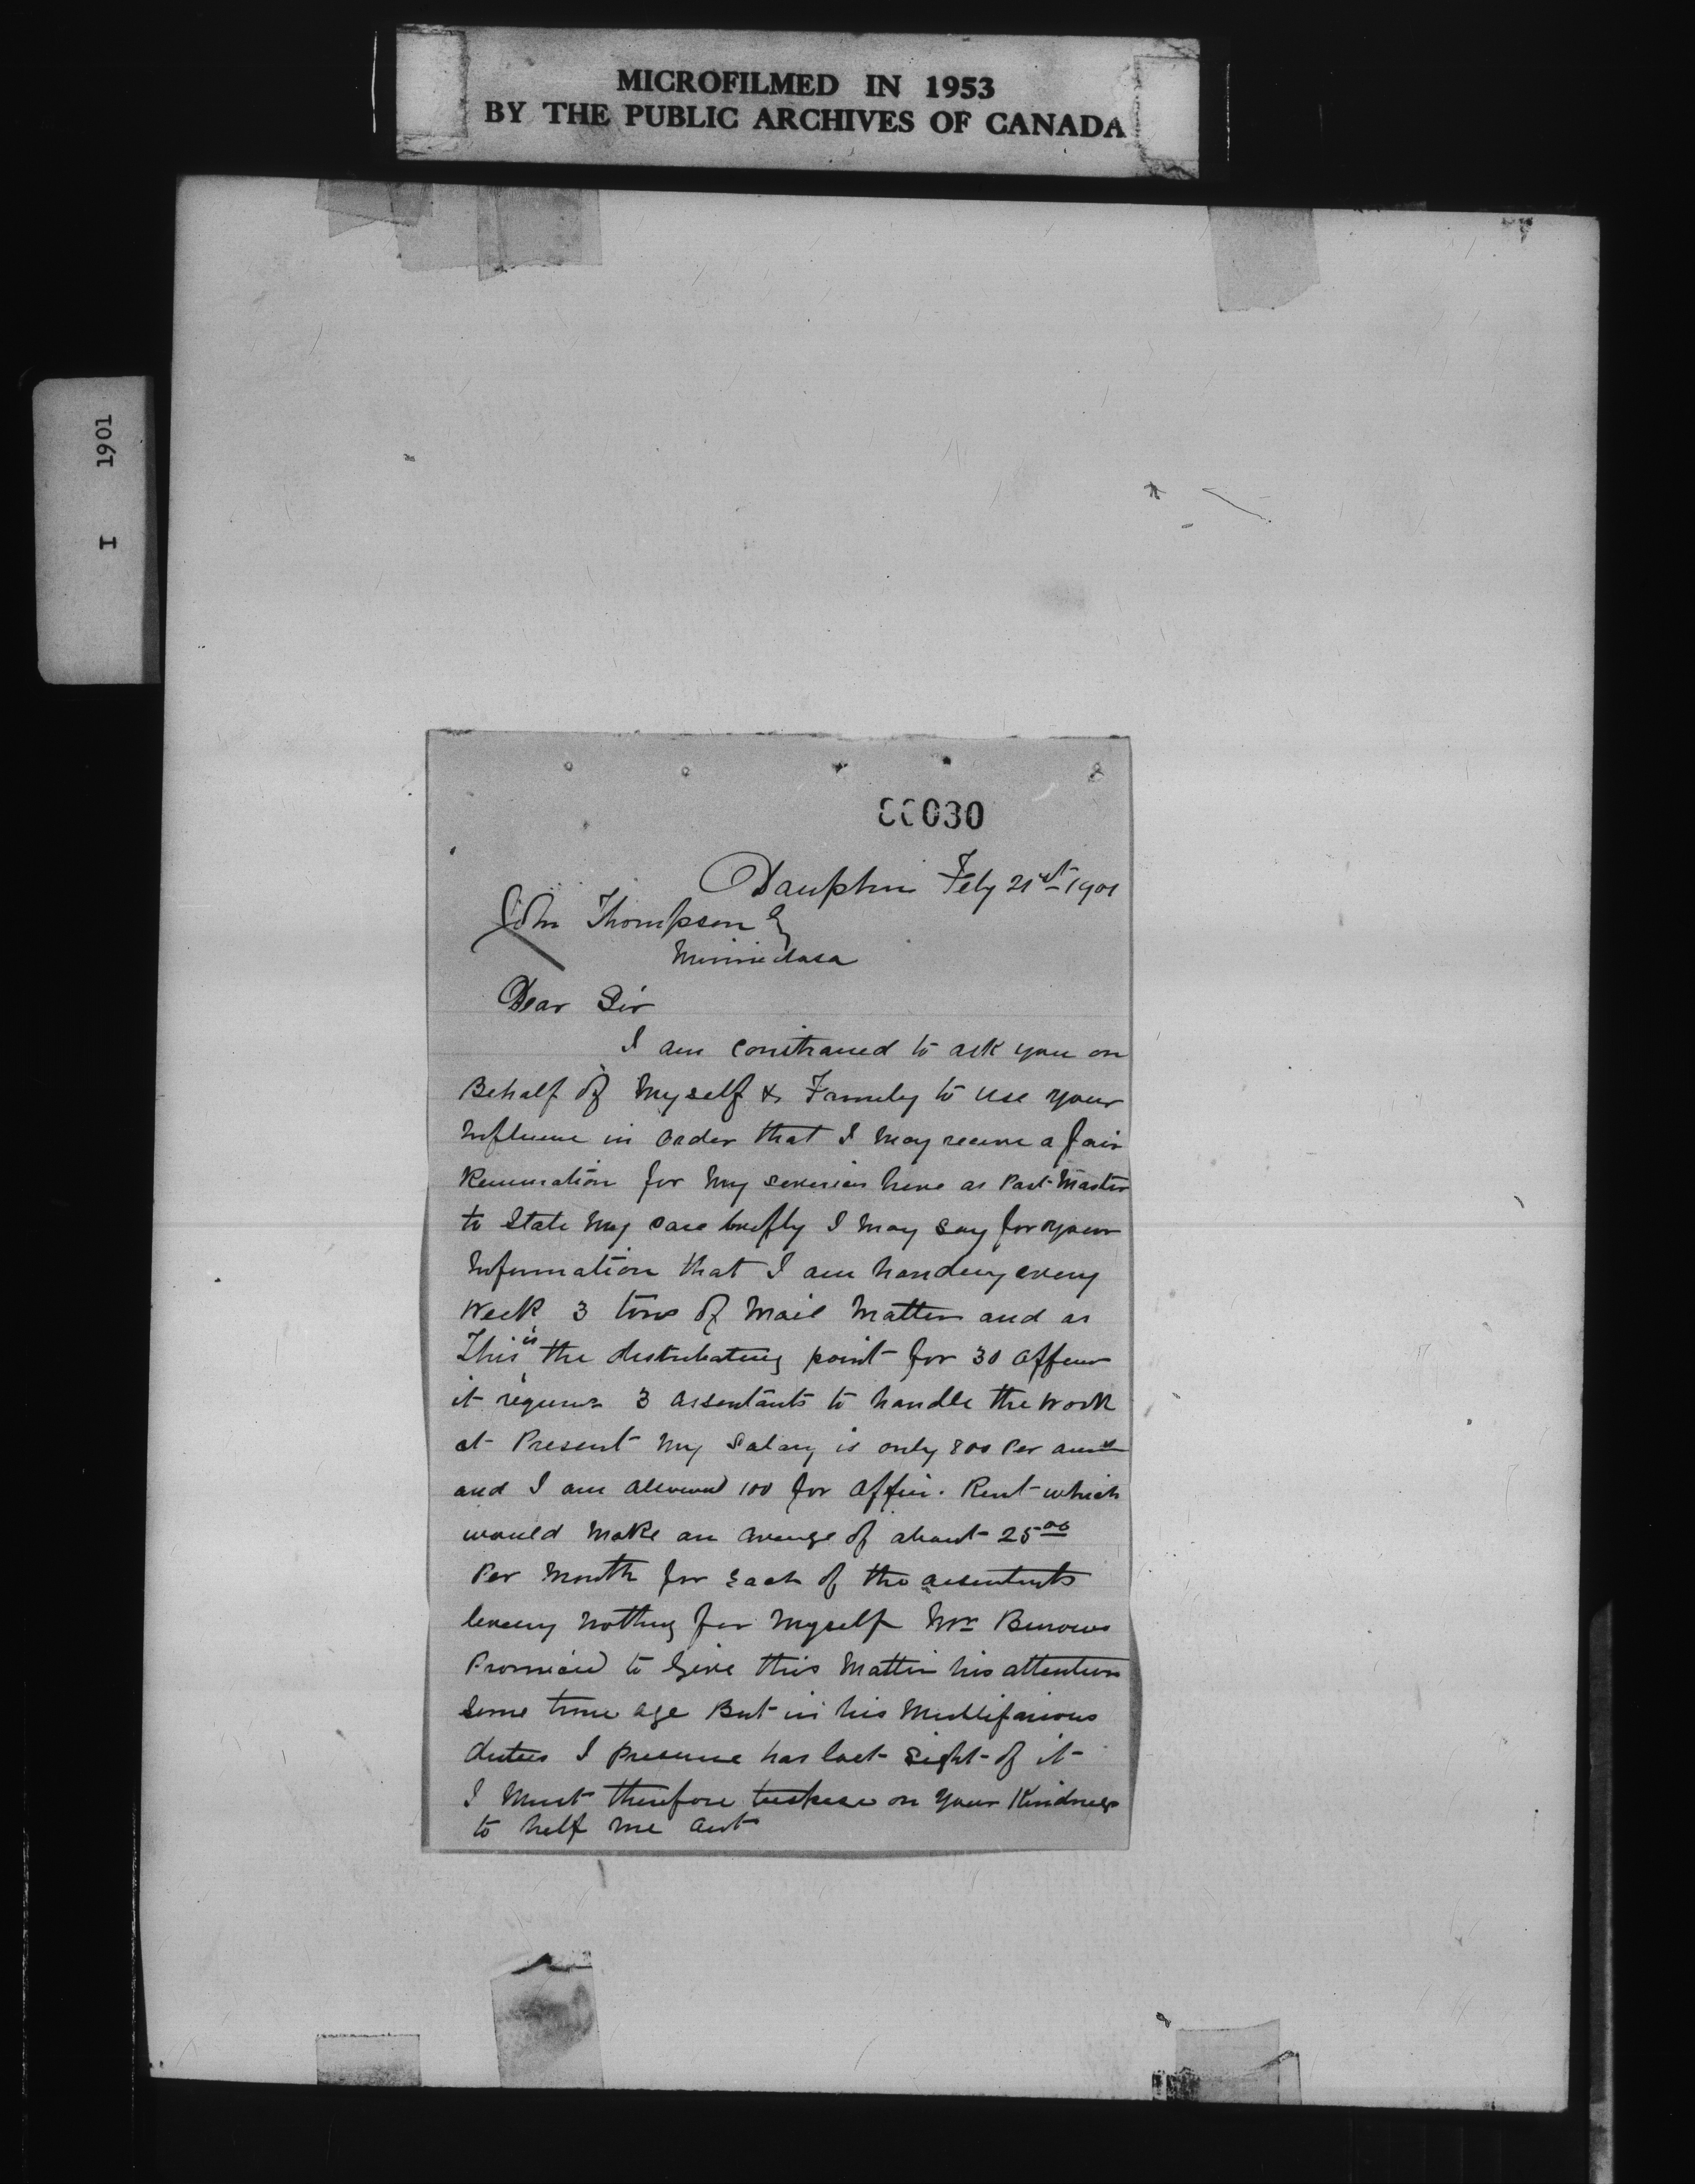 MICROFILMED IN 1953
BY THE PUBLIC ARCHIVES OF CANADA
I 1901
030
Dauphin Feby 21st 1901
John Thompson Esq
Minnedosa
Dear Sir
I am constraned to ask you on
Behalf of Myself & Family to use your
Influence in Order that I May receive a fair
Remunration for My services here as Post Master
to State My case briefly I may say for your
Information that I am handling every
Week 3 tons of Mail Matter and as
This is the distributing point for 30 Offices
it requires 3 assistants to handle the work
at Present My Salary is only 800 Per
and I am allowed 100 for Office Rent which
would Make an average of about 25 00
Per Month for Each of the assistants
leaving Nothing for Myself Mr Burrows
Promised to Give this Matter his attention
some time ago But in his Multifarious
duties I presume has lost sight of it
I Must therefore on your Kindness
to help me out